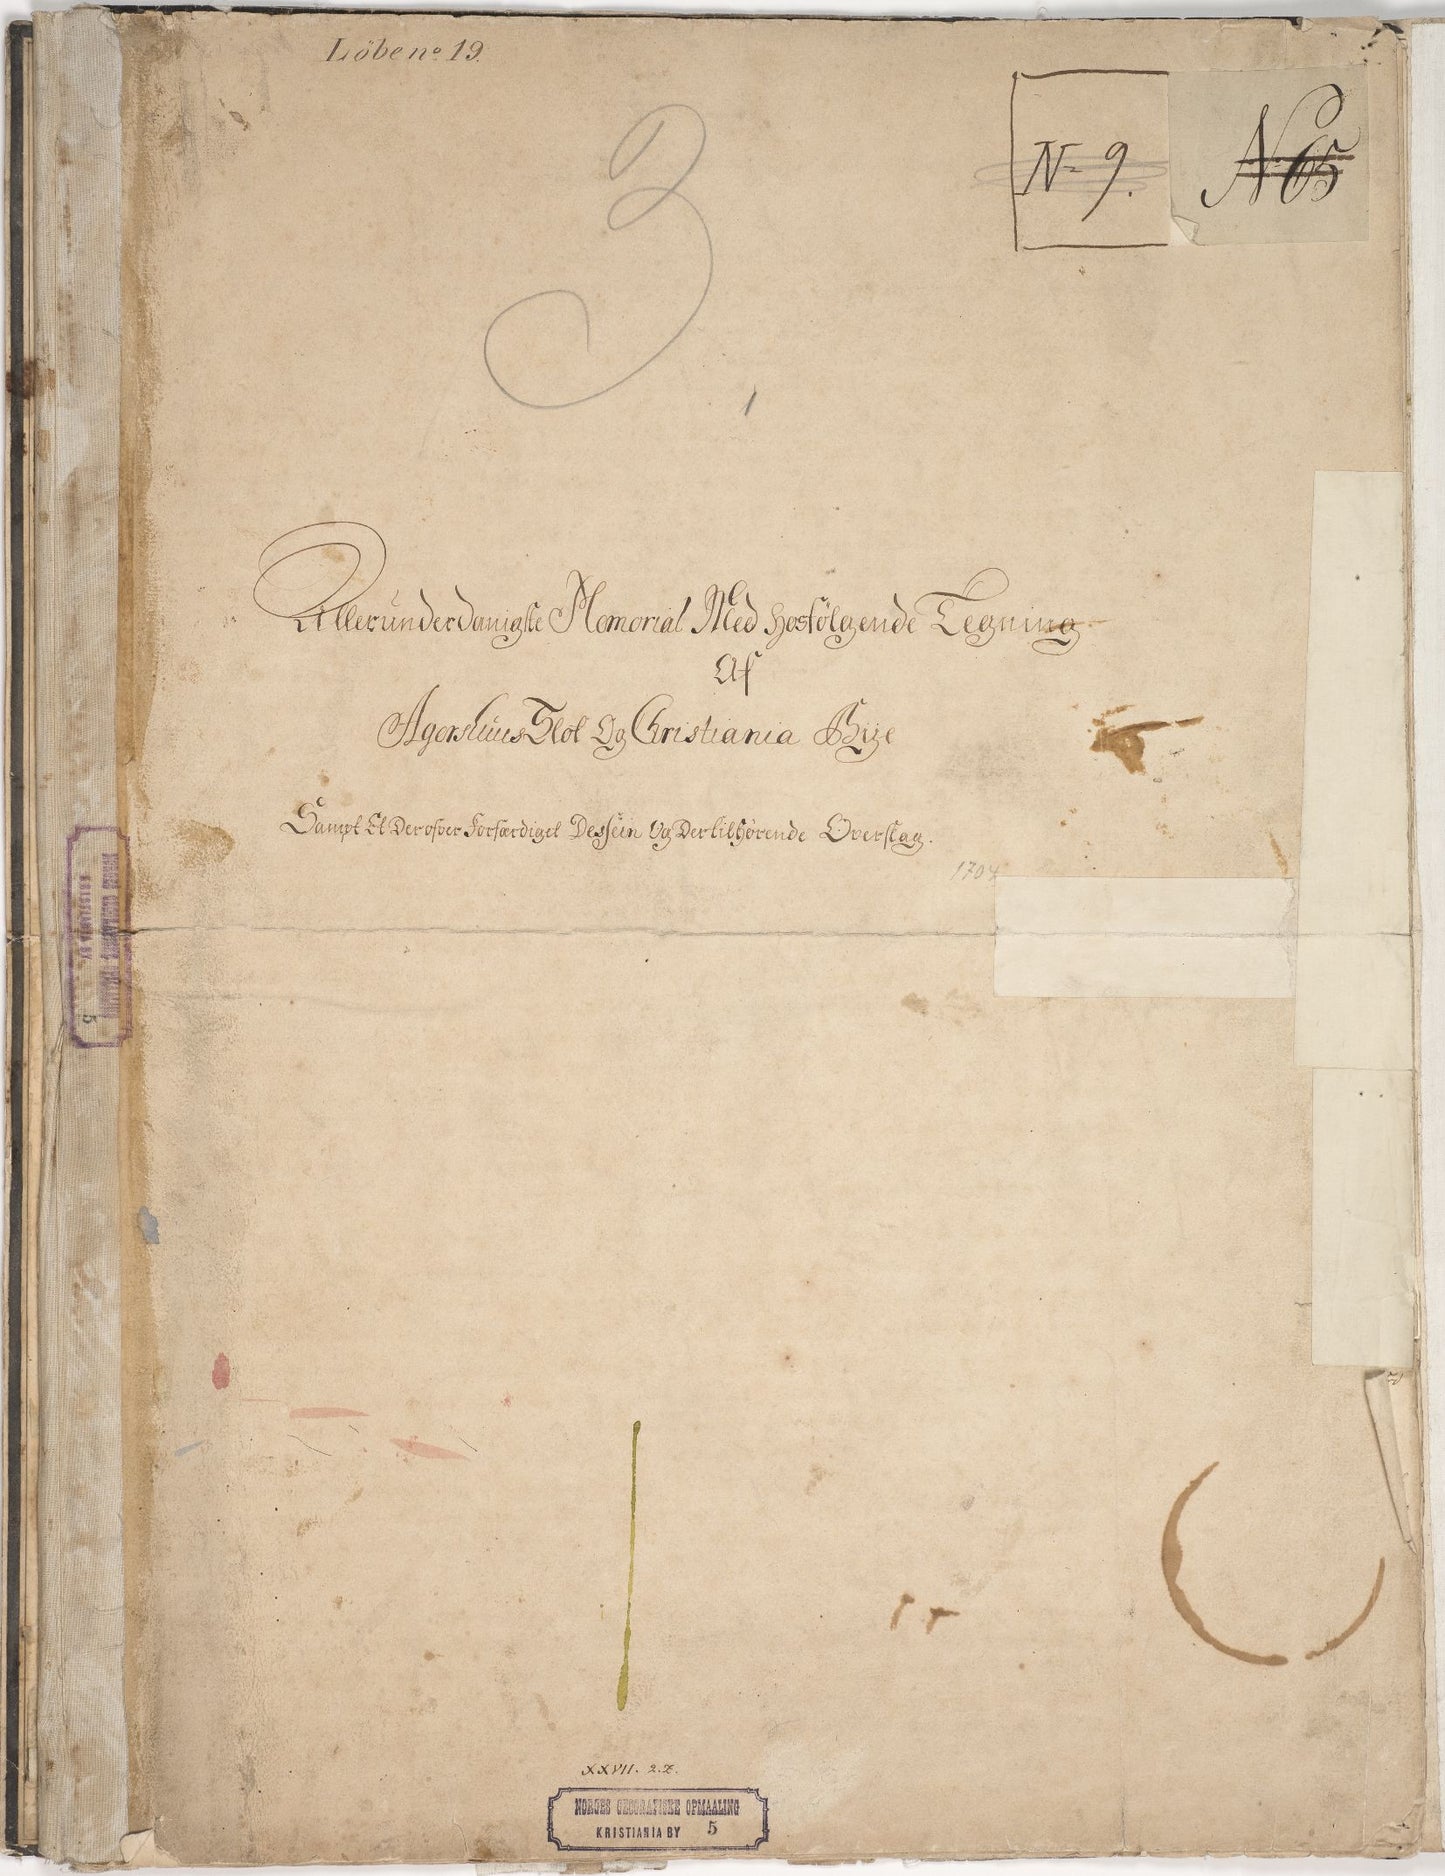 Löbe no 19.
3
N= 9.
N. 65
Allerunderdanigste Memorial Med hosfölgende Tegning
Af
Agershuus Slot Og Christiania Bÿe
Sampt Et Derofver Forfærdiget Dessein Og Dertilhørende Overslag.
1704
XXVII. 2.
NORGES GEOGRAFISKE OPMAALING
KRISTIANIA BY 5
NORGES GEOGRAFISKE OPMAALING
KRISTIANIA BY
5